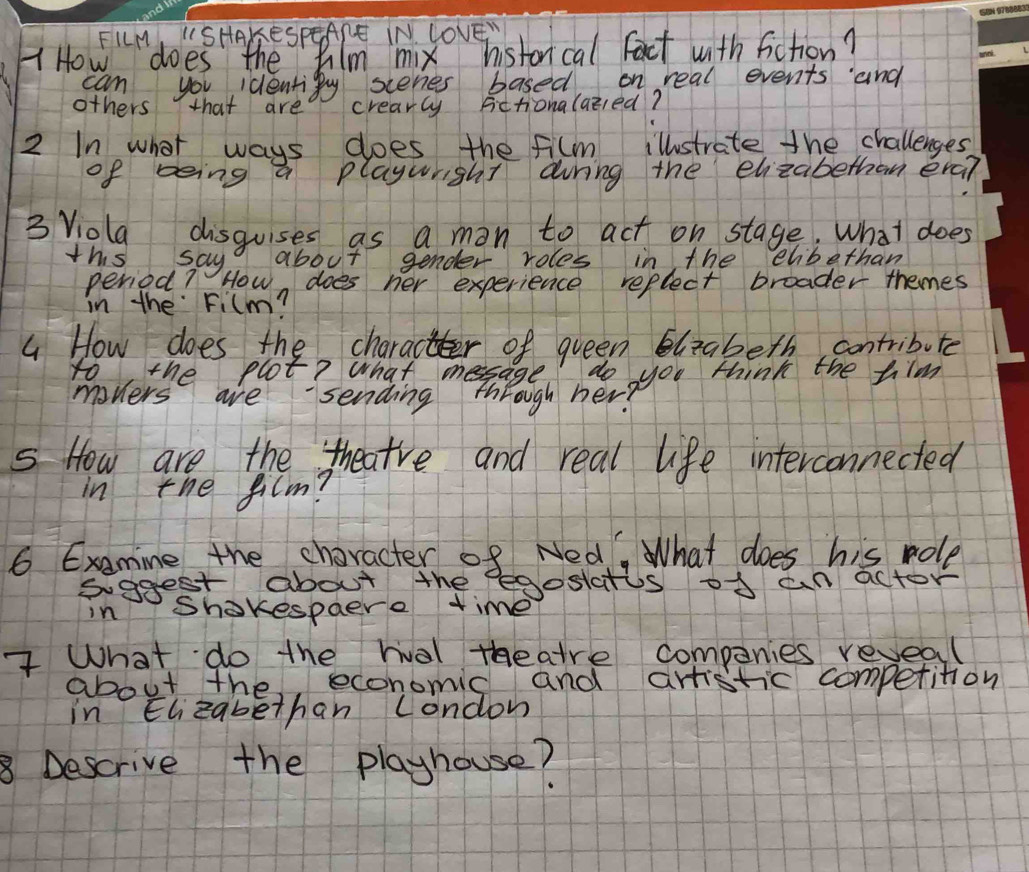 and in
ISBN 978888833
FILM "SHAKESPEARE IN LOVE"
1 How does the film mix historical fact with fiction?
can you identify scenes based on real events and
others that are crearly fictionalazied?
2 In what ways does the film illustrate the challenges
of being a playwright during the elizabethan era?
3 Viola disguises as a man to act on stage. What does
this say about gender roles in the elibethan
period? How does her experience reflect broader themes
in the Film?
4 How does the character of queen Elizabeth contribute
to the plot? What message do you think the film
makers are sending through her?
5 How are the theatre and real life interconnected
in the film?
6 Examine the character of Ned. What does his role
suggest about the egostatus of an actor
in Shakespaere time
7 What do the rival theatre companies reveal
about the economic and artistic competition
in Elizabethan London
8 Descrive the playhouse?